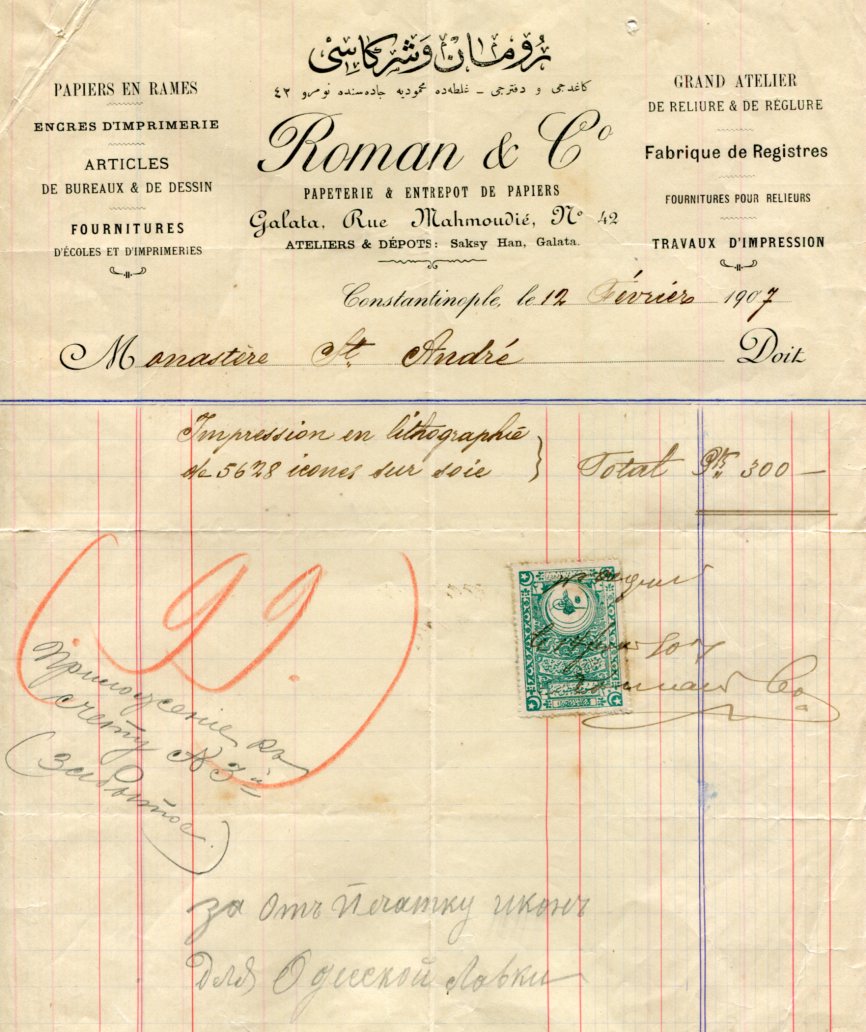 رومان وشركاسى
كاغدجى و دفترجى ـ غلطه‌ده محموديه جاده‌سنده نومرو ٤٢
Roman & Cº
PAPETERIE & ENTREPOT DE PAPIERS
Galata, Rue Mahmoudié, Nº 42
ATELIERS & DÉPOTS: Saksy Han, Galata.
PAPIERS EN RAMES
ENCRES D'IMPRIMERIE
ARTICLES
DE BUREAUX & DE DESSIN
FOURNITURES
D'ÉCOLES ET D'IMPRIMERIES
GRAND ATELIER
DE RELIURE & DE RÉGLURE
Fabrique de Registres
FOURNITURES POUR RELIEURS
TRAVAUX D'IMPRESSION
Constantinople, le 12 Février 1907
Monastère St. André Doit
Impression en lithographie
de 5628 icones sur soie } Total Ptr 300 —
99.
Приложеніе къ
счету N 3й
(Забытое.)
за отъ печатку иконъ
для Одесской лавки